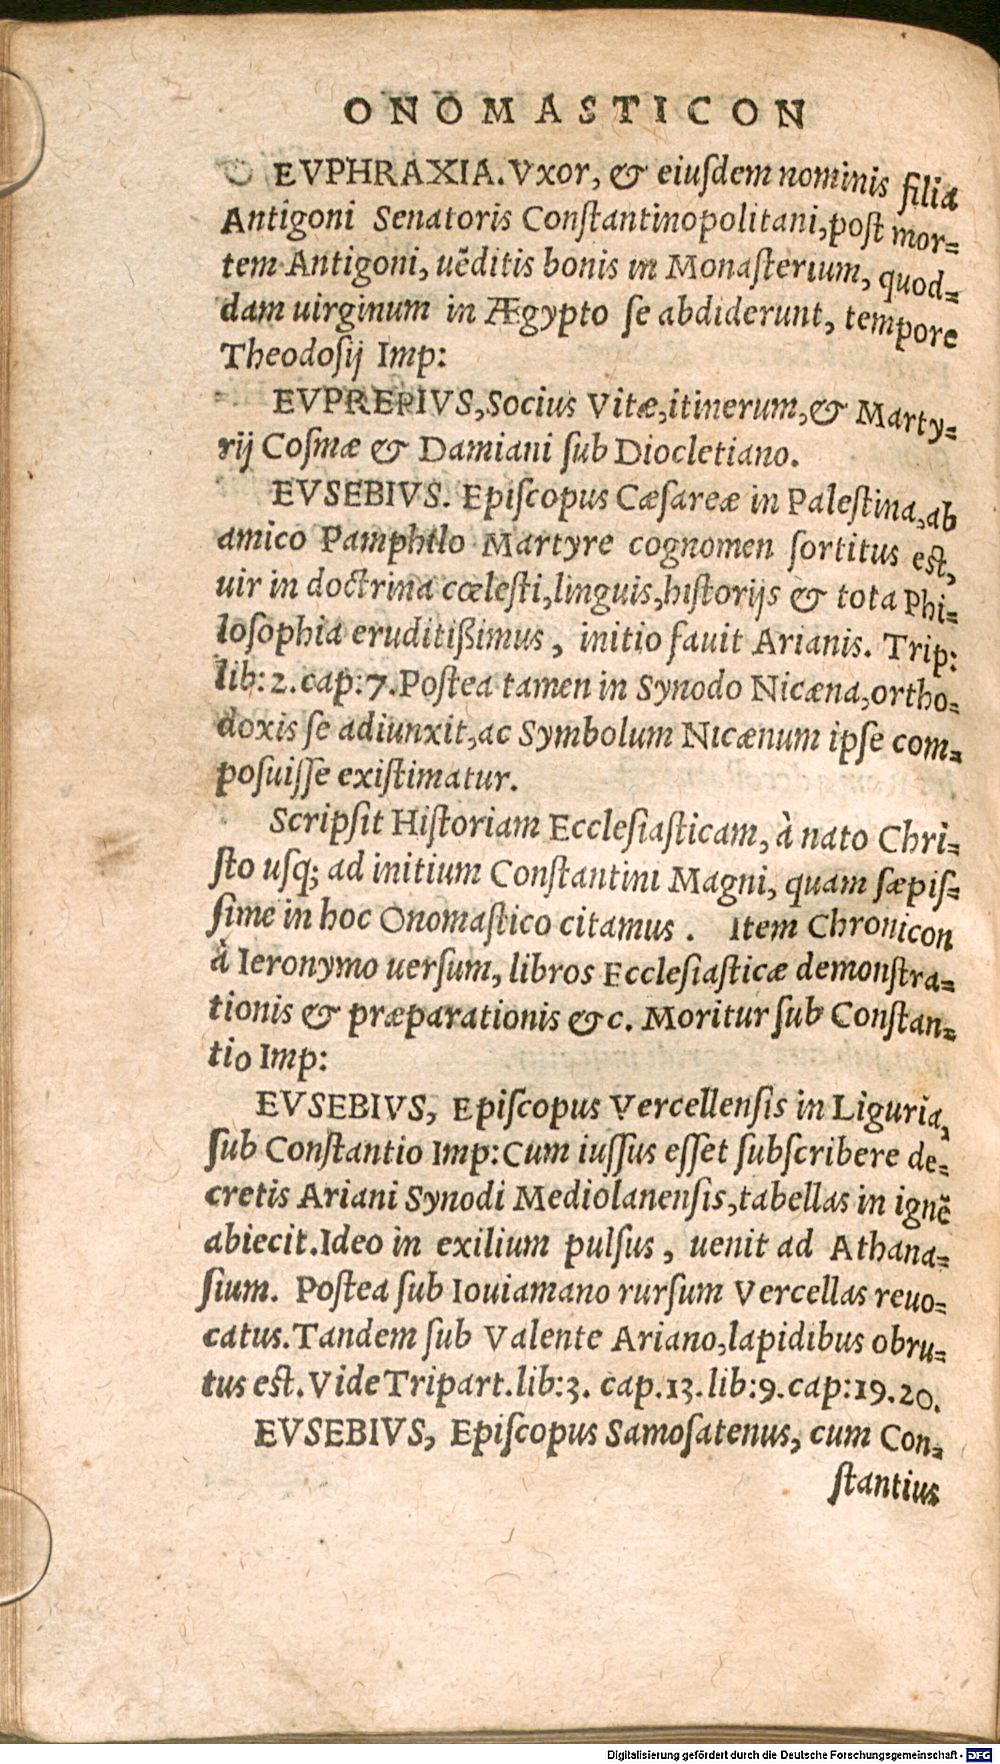 ONOMASTICON
EVPHRAXIA. Vxor, & eiuſdem nominis filia
Antigoni Senatoris Conſtantinopolitani, poſt mor=
tem Antigoni, uẽditis bonis in Monaſterium, quod=
dam uirginum in Ægypto ſe abdiderunt, tempore
Theodoſij Imp:
EVPREPIVS, Socius Vitæ, itinerum, & Marty=
rij Coſmæ & Damiani ſub Diocletiano.
EVSEBIVS. Epiſcopus Cæſareæ in Palestina, ab
amico Pamphilo Martyre cognomen ſortitus eſt,
uir in doctrina cœleſti, linguis, hiſtorijs & tota Phi=
loſophia eruditißimus, initio fauit Arianis. Trip:
lib: 2. cap: 7. Poſtea tamen in Synodo Nicæna, ortho=
doxis ſe adiunxit, ac Symbolum Nicænum ipſe com=
poſuiſſe exiſtimatur.
Scripſit Hiſtoriam Eccleſiaſticam, à nato Chri=
ſto uſq; ad initium Conſtantini Magni, quam ſæpiſ=
ſime in hoc Onomaſtico citamus. Item Chronicon
à Ieronymo uerſum, libros Eccleſiaſticæ demonſtra=
tionis & præparationis &c. Moritur ſub Conſtan=
tio Imp:
EVSEBIVS, Epiſcopus Vercellenſis in Liguria,
ſub Conſtantio Imp: Cum iuſſus eſſet ſubſcribere de=
cretis Ariani Synodi Mediolanenſis, tabellas in ignẽ
abiecit. Ideo in exilium pulſus, uenit ad Athana=
ſium. Poſtea ſub Iouiamano rurſum Vercellas reuo=
catus. Tandem ſub Valente Ariano, lapidibus obru=
tus eſt. Vide Tripart. lib: 3. cap. 13. lib: 9. cap: 19. 20.
EVSEBIVS, Epiſcopus Samoſatenus, cum Con=
ſtantius
Digitalisierung gefördert durch die Deutsche Forschungsgemeinschaft - DFG